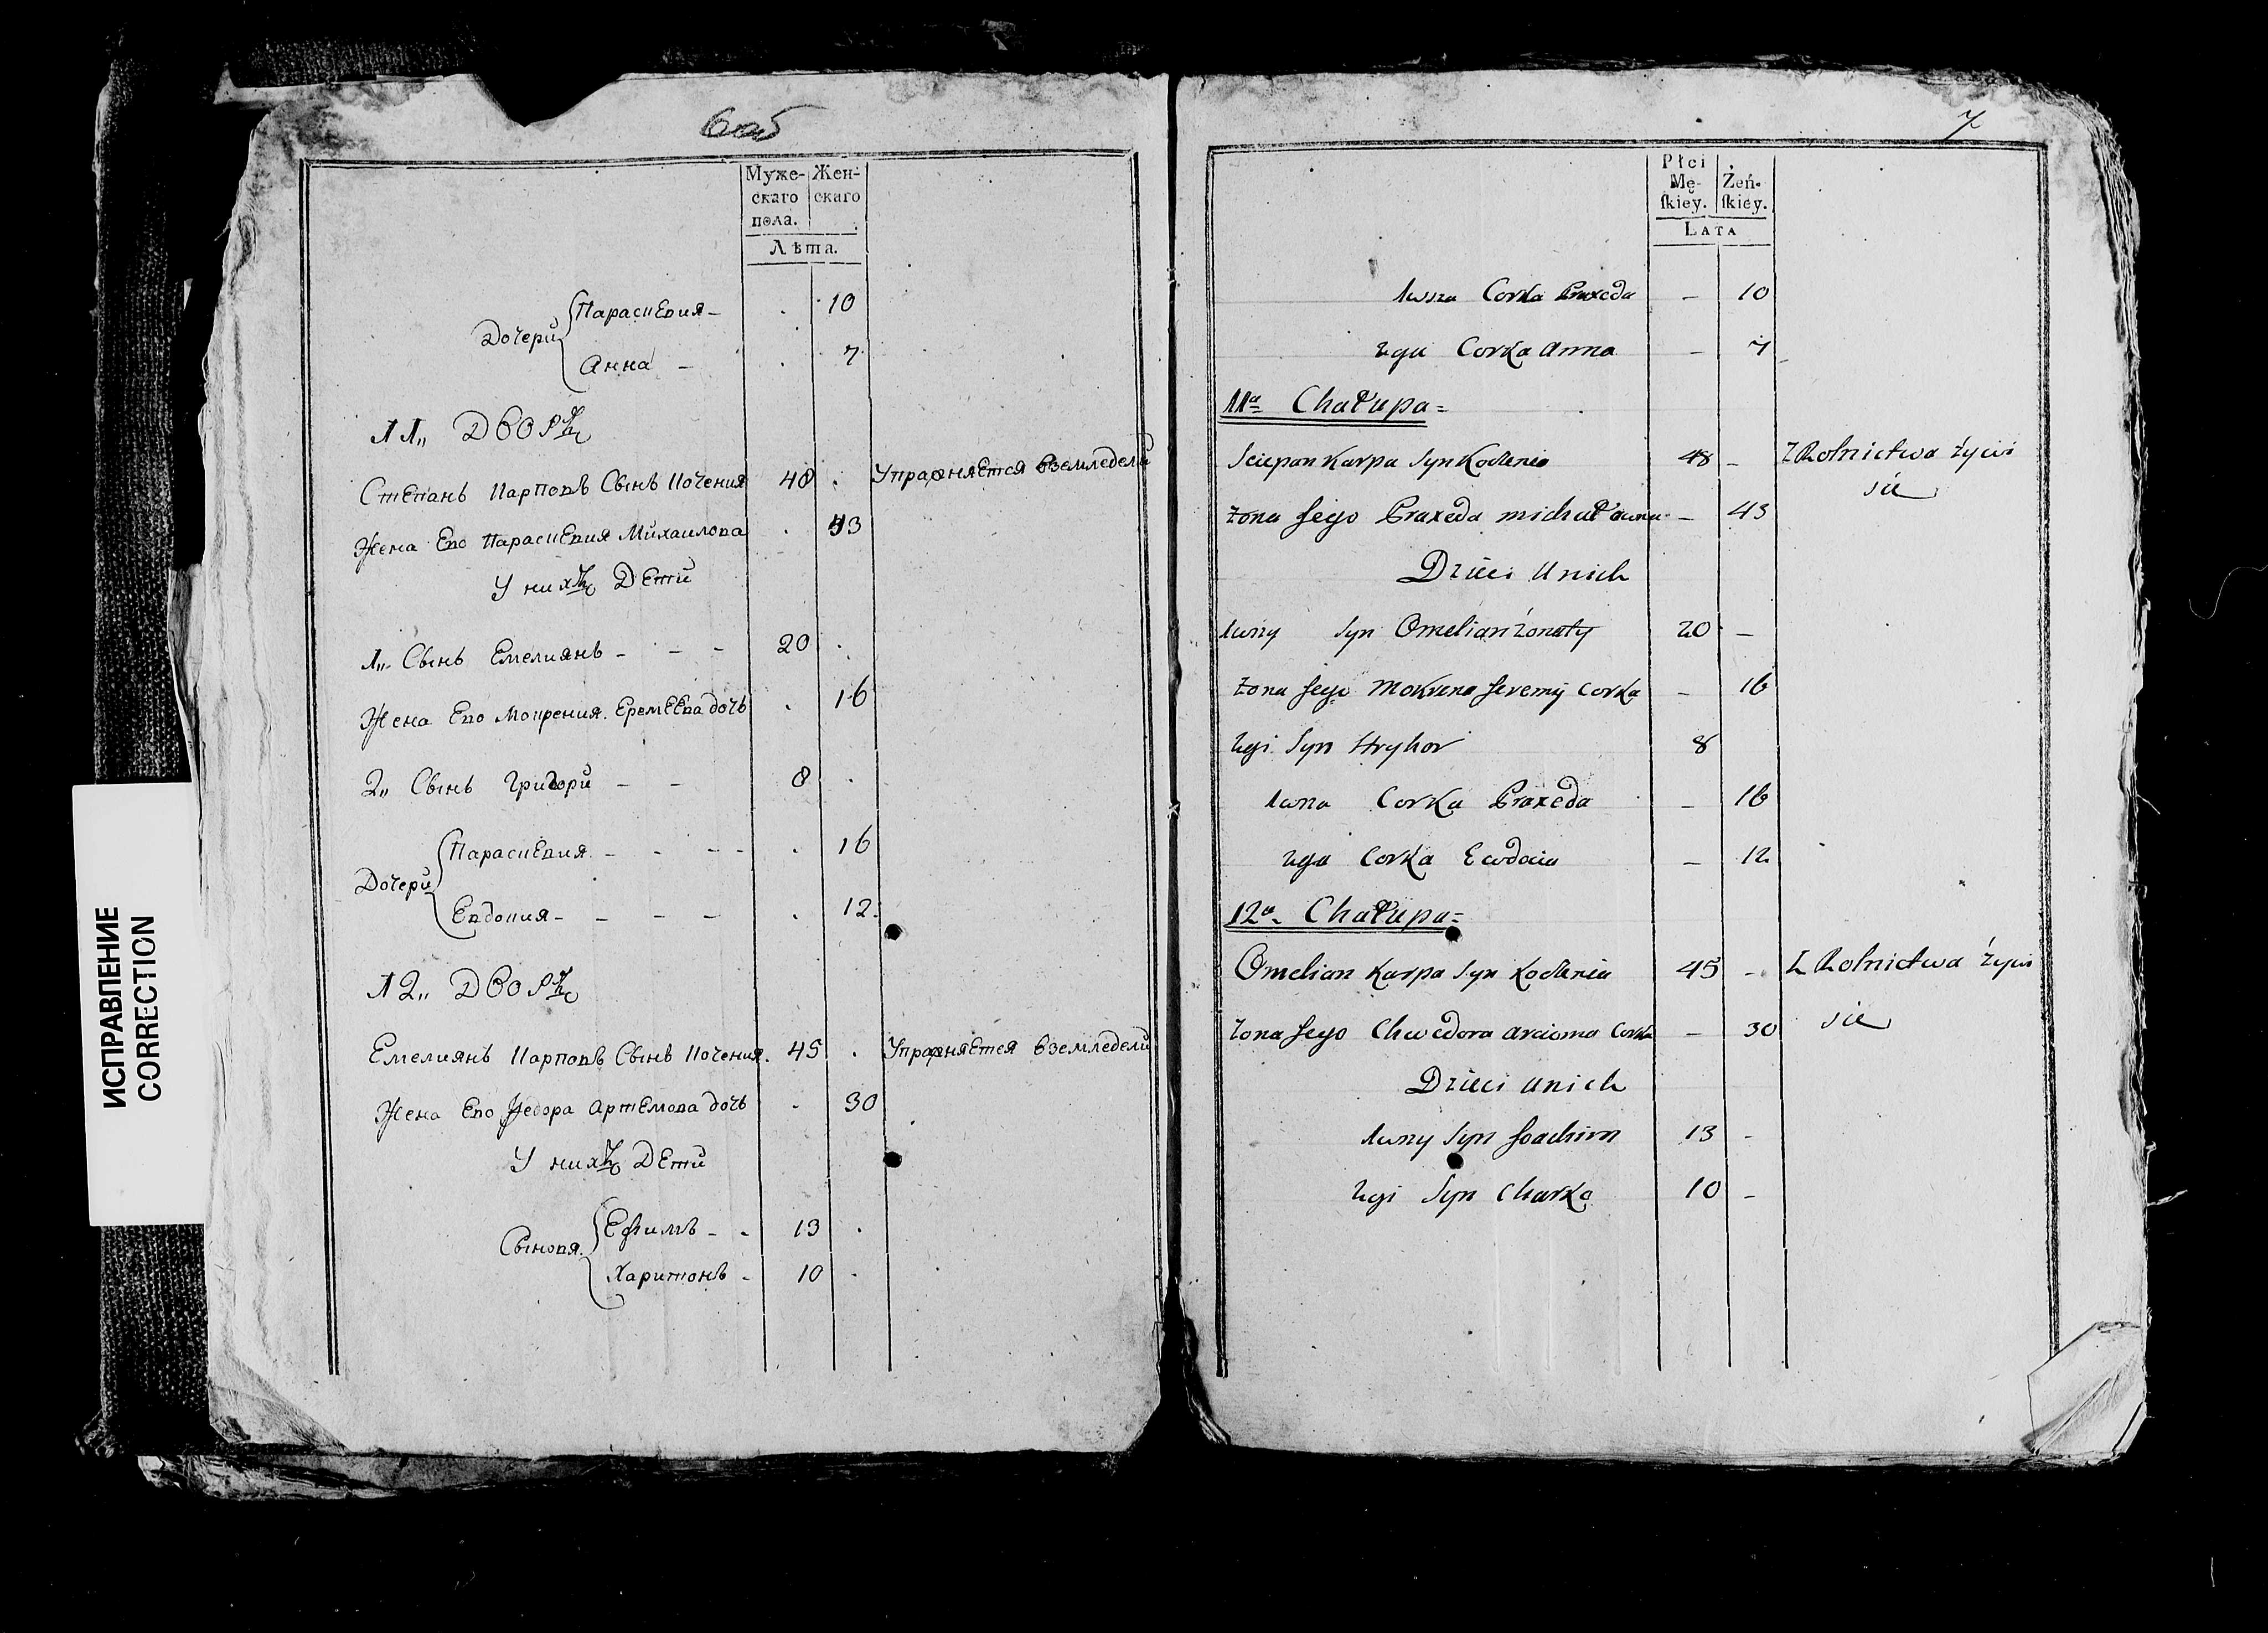 6об
Муже-
скаго
пола.
Жен-
скаго
Лѣта.
Дочери
Параскевия - 10
Анна - 7
11„ Дворъ
Степанъ Карповъ Сынъ Коченя 48 Упражняется вземледели
Жена Ево Параскевия Михаилова 43
У нихъ Дети
1„ Сынъ Емелиянъ - - - 20
Жена Ево Мокрения Еремеева дочь 16
2„ Сынъ Григори - - 8
Дочери
Параскевия - - - - 16
Евдокия - - - - 12
12„ Дворъ
Емелиянъ Карповъ Сынъ Коченя. 45 Упражняется вземледели
Жена Ево Федора Артемова дочь 30
У нихъ Дети
Сыновя
Ефимъ - - 13
Харитонъ - 10
7
Płci
Mę-
ſkiey.
Żeń-
ſkiey.
Lata
1wsza Corka Praxeda - 10
2ga Corka Anna - 7
11a Chałupa =
Sciepan Karpa Syn 48 - Z Rolnictwa żywi
sie
żona Jego Praxeda michałowna - 43
Dzieci U nich
1wszy Syn Omelian żonaty 20 -
żona Jego Mokrena Jeremij Corka - 16
2gi Syn Hryhor 8
1wsza Corka Praxeda - 16
2ga Corka Ewdocia - 12
12a Chałupa =
Omelian Karpa Syn 45 - Z Rolnictwa żywi
sie
żona Jego Chwedora Arcioma Corka - 30
Dzieci U nich
1wszy Syn Joachim 13 -
2gi Syn Charko 10 -
ИСПРАВЛЕНИЕ
CORRECTION